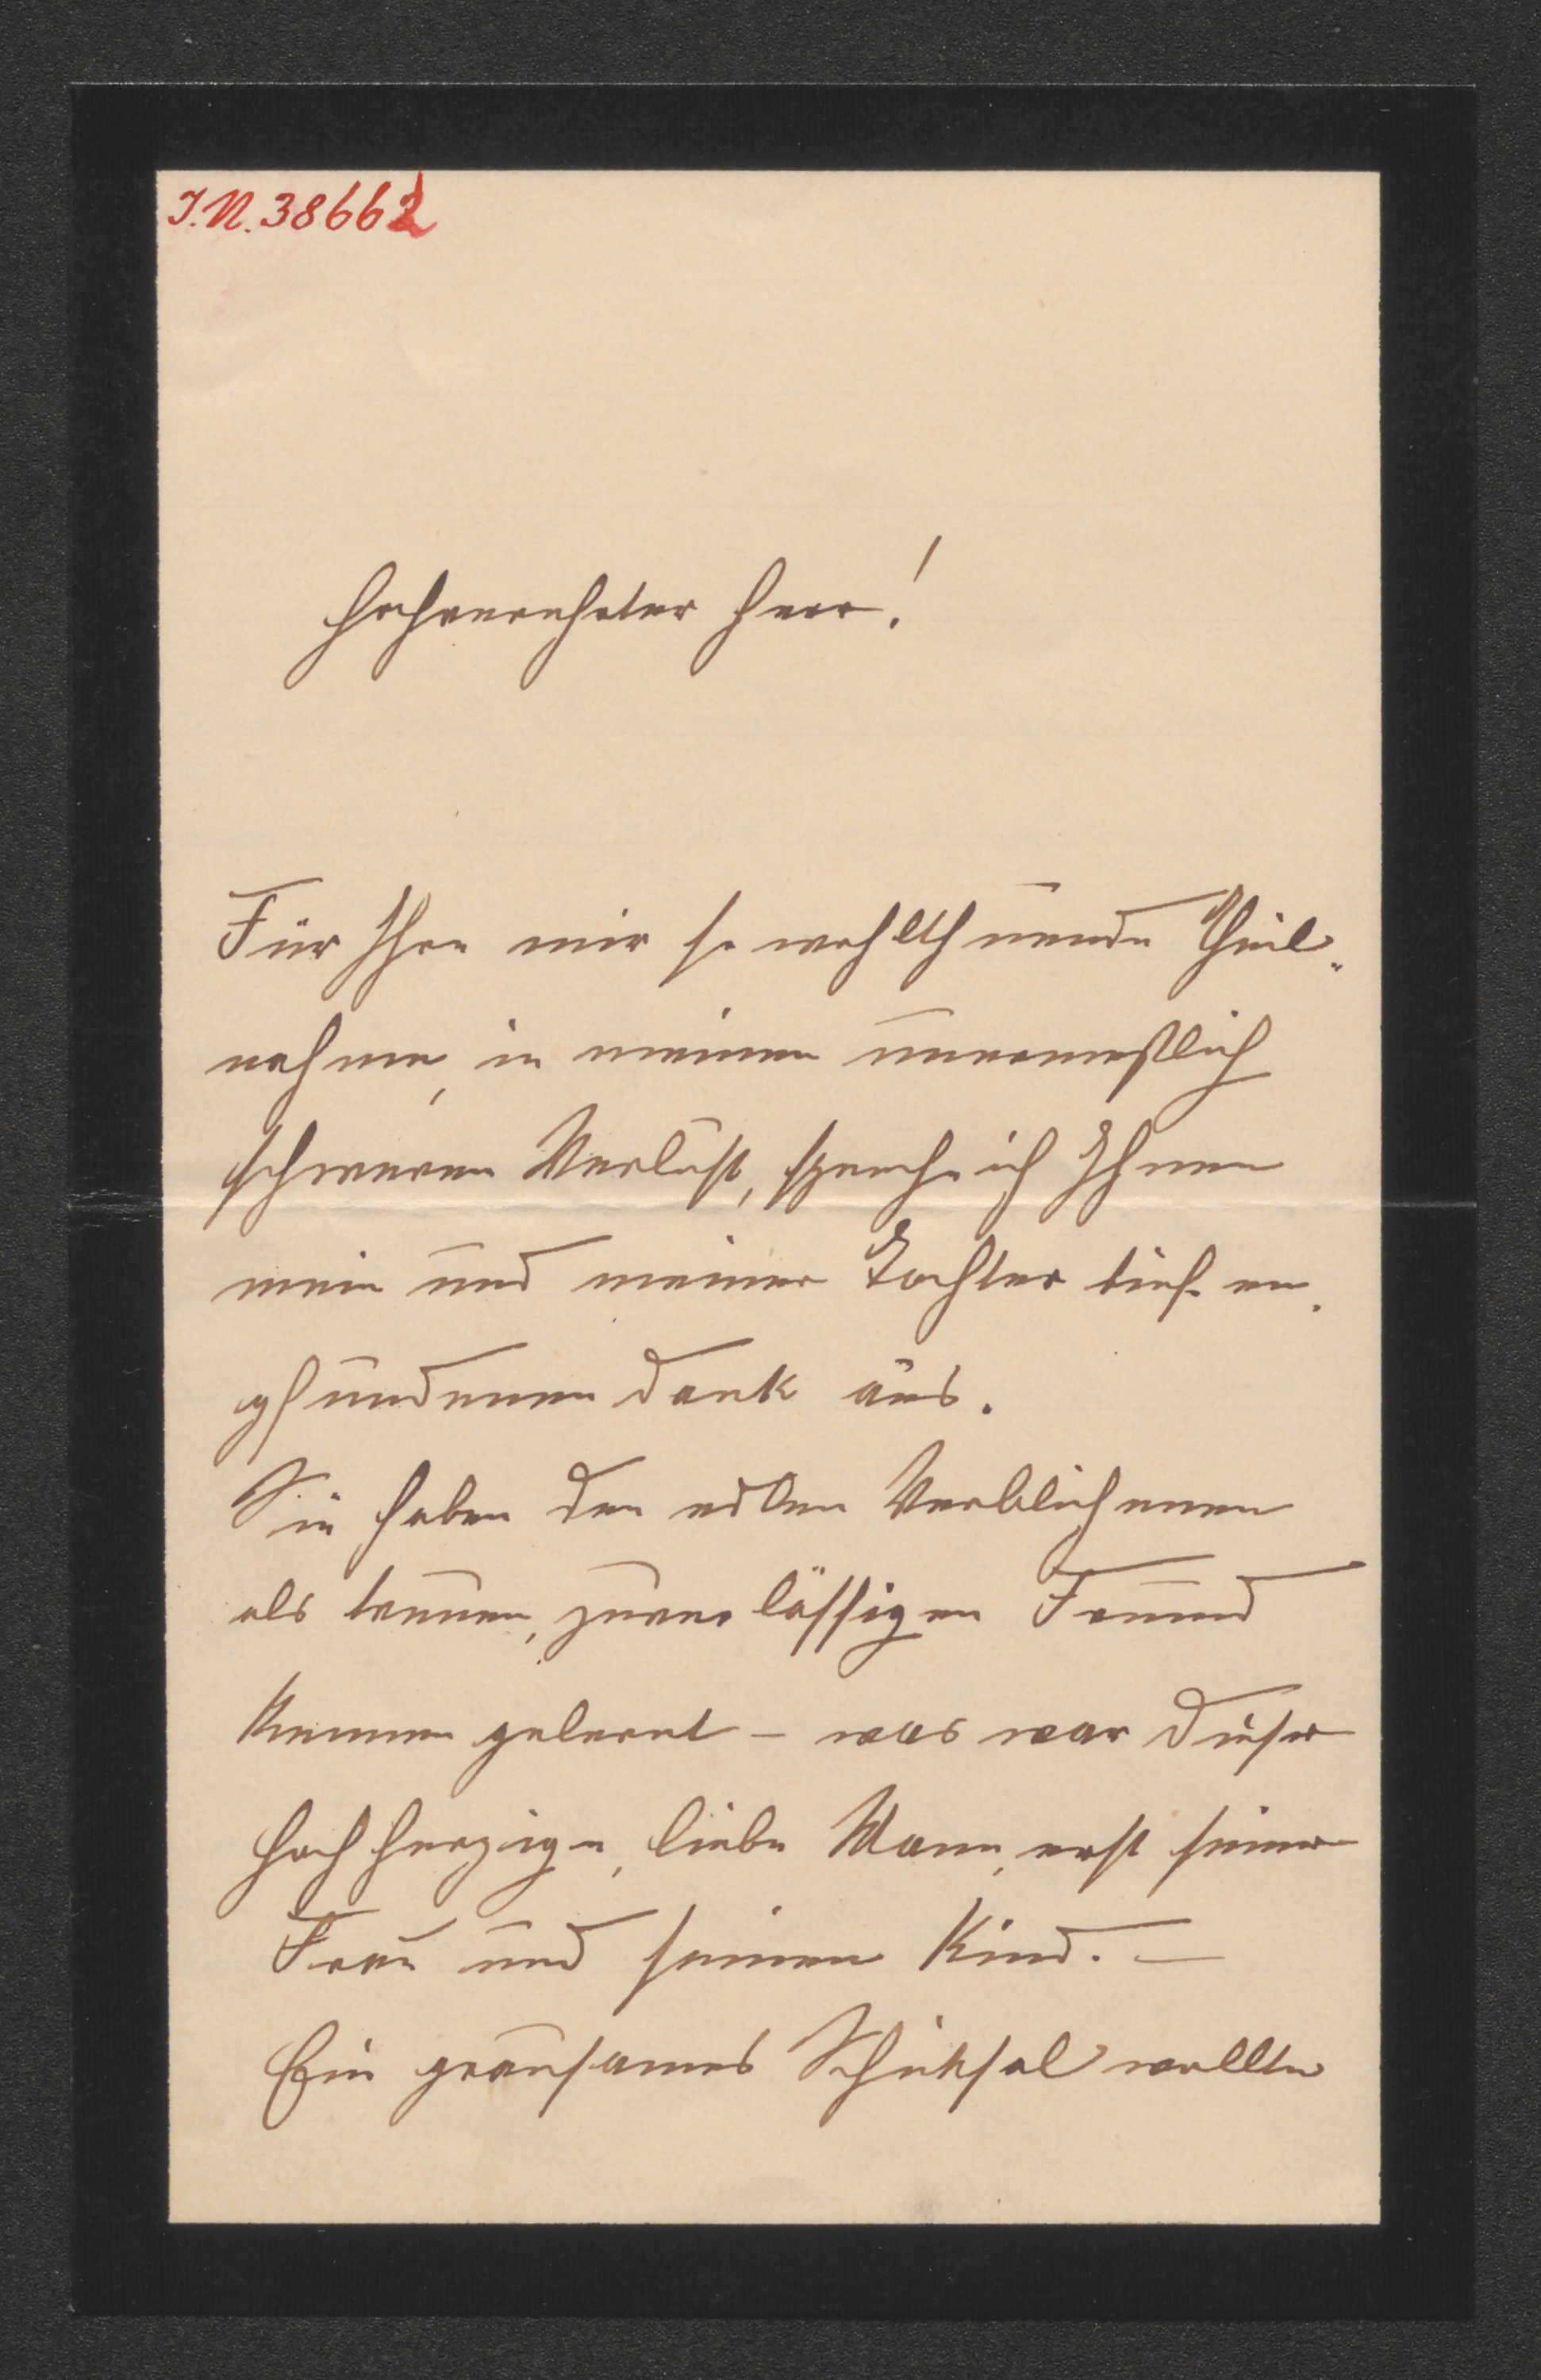 J.N. 38662
Hochverehrter Herr!
Für Ihre mir so wohlthuende Theil-
nahme, in meinem unermeßlich
schweren Verlust, spreche ich Ihnen
mein und meiner Tochter tief em-
pfundenen Dank aus.
Sie haben den edlen Verblichenen
als treuen, zuverlässigen Freund
kennen gelernt – was war dieser
hochherzige, liebe Mann, erst seiner
Frau und seinem Kind. –
Ein grausames Schicksal wollte